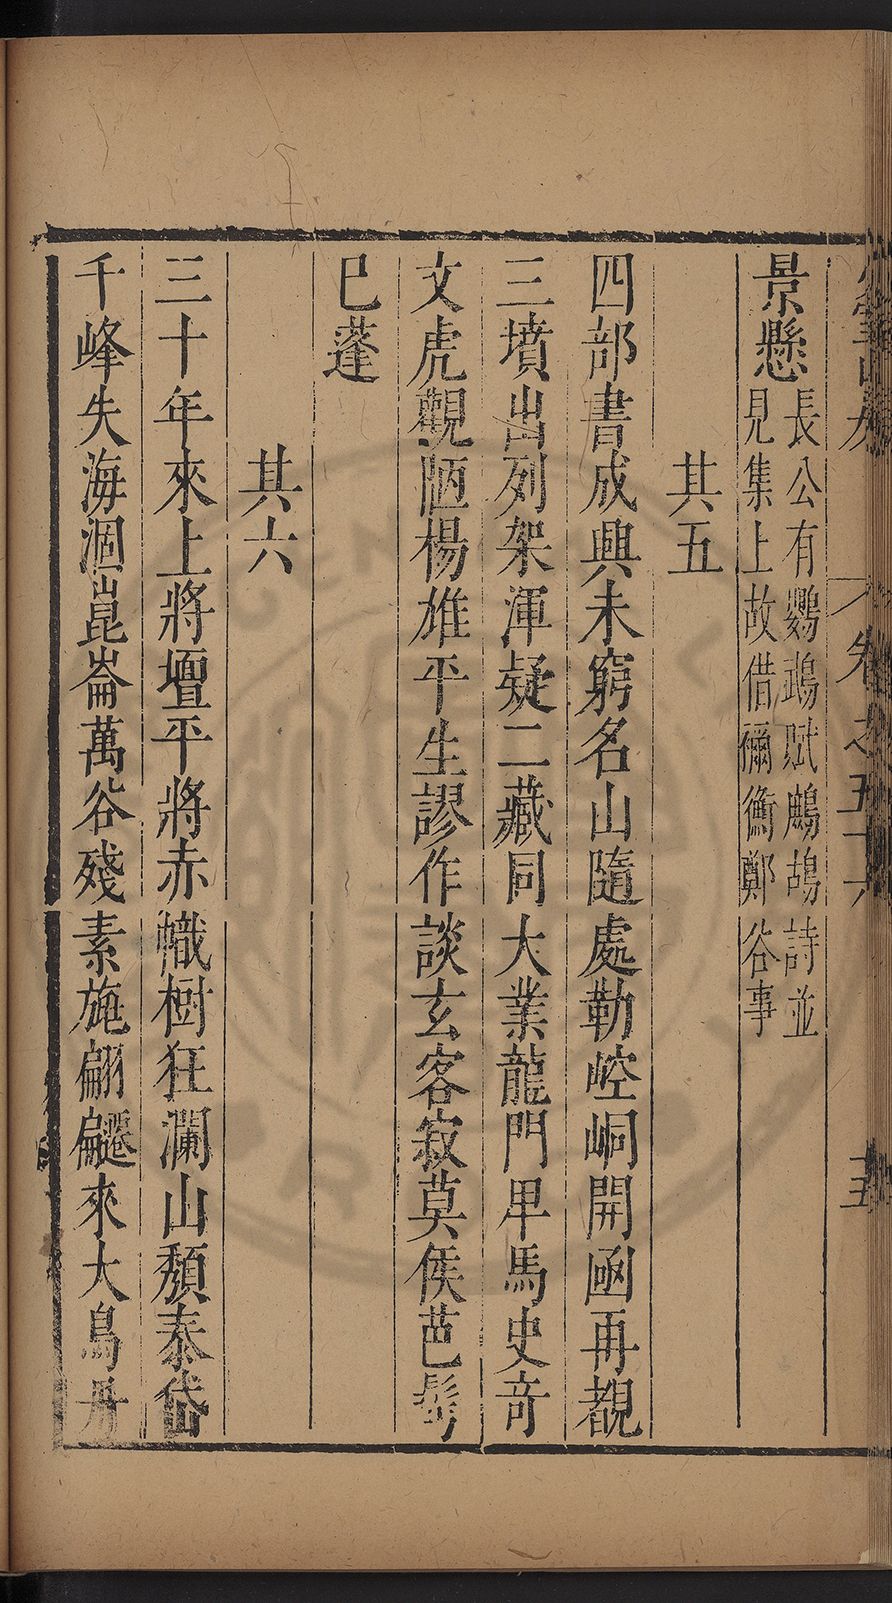 卷之五十六
五
景懸長公有鸚鵡賦鷓鴣詩並
見集上故借禰衡鄭谷事
其五
四部書成興未窮名山隨處勒崆峒開函再覩
三墳出列架渾疑二藏同大業龍門甲馬史竒
文虎觀陋楊雄平生謬作談玄客寂莫侯芭髩
已蓬
其六
三十年來上將壇平將赤幟樹狂瀾山頹泰岱
千峰失海涸崑崙萬谷殘素旐翩䙴來大鳥丹